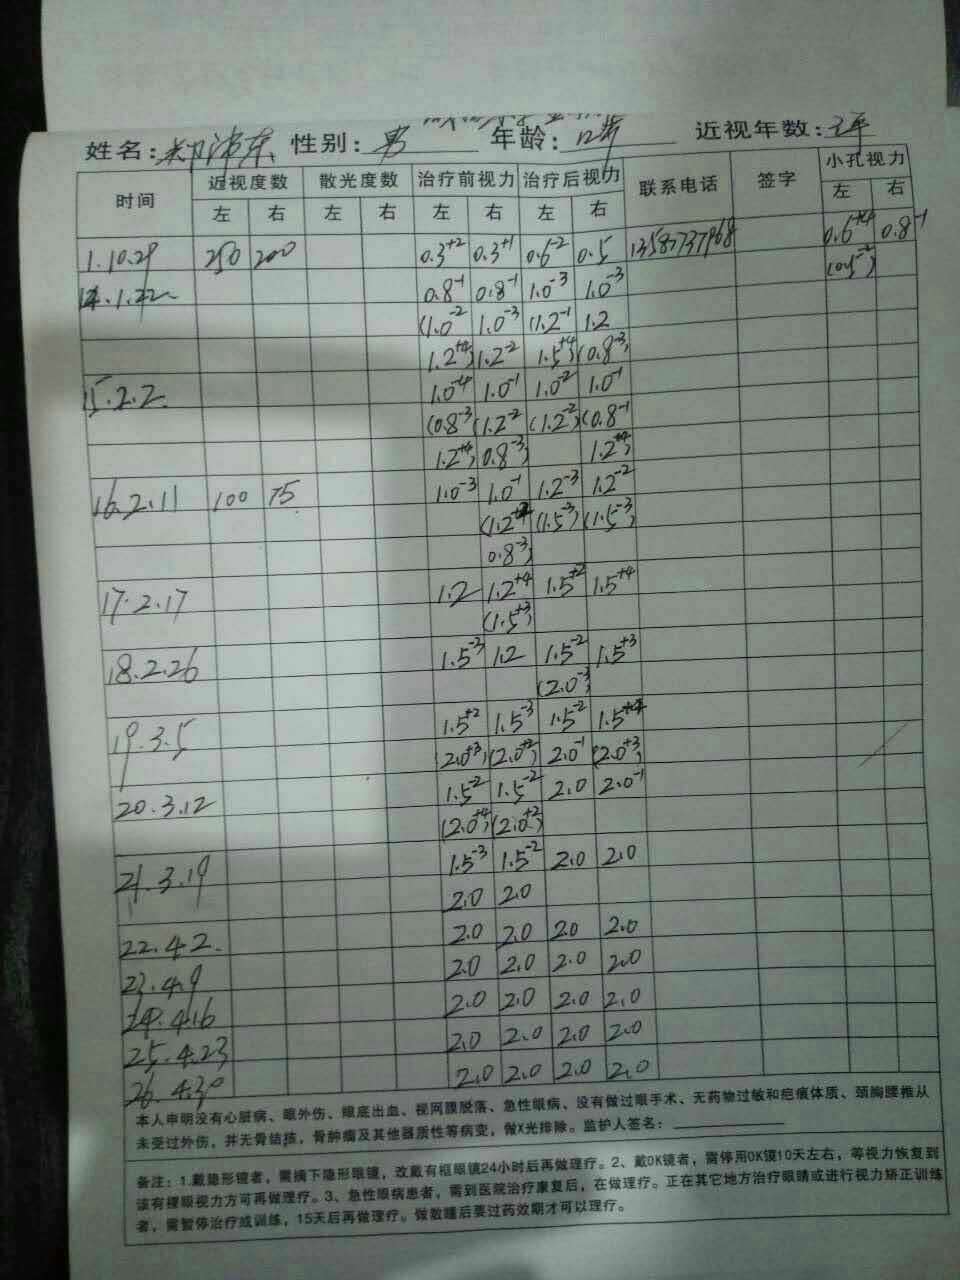 姓名: 性别: 男 年龄: 12岁 近视年数:
时间 近视度数 散光度数 治疗前视力 治疗后视力 联系电话 签字 小孔视力
左 右 左 右 左 右 左 右 左 右
1.10.29 250 200 0.3+2 0.3+1 0.6-2 0.5 0.6+4 0.8-1
(0.5-2)
14.1.22 0.8-1 0.8-1 1.0-3 1.0-3
(1.0-2 1.0-3 (1.2-1 1.2
1.2+4) 1.2-2 1.5+4) (0.8-3)
15.2.2. 1.0-4 1.0-1 1.0-2 1.0-1
(0.8-3 (1.2-2 (1.2-2) (0.8-1
1.2+4) 0.8-3) 1.2+4)
16.2.11 100 75 1.0-3 1.0-1 1.2-3 1.2-2
(1.2+2 (1.5-3) (1.5-3)
0.8-3)
17.2.17 1.2 1.2+4 1.5+2 1.5+4
(1.5+3)
18.2.26 1.5-3 1.2 1.5-2 1.5+3
(2.0-3)
19.3.5 1.5+2 1.5-3 1.5-2 1.5+4
(2.0+3) (2.0+2) 2.0-1 (2.0+3)
20.3.12 1.5-2 1.5-2 2.0 2.0-1
(2.0+4) (2.0+2)
21.3.19 1.5-3 1.5-2 2.0 2.0
2.0 2.0
22.4.2. 2.0 2.0 2.0 2.0
23.4.9 2.0 2.0 2.0 2.0
24.4.16 2.0 2.0 2.0 2.0
25.4.23 2.0 2.0 2.0 2.0
26.4.30 2.0 2.0 2.0 2.0
本人申明没有心脏病、眼外伤、眼底出血、视网膜脱落、急性眼病、没有做过眼手术、无药物过敏和疤痕体质、颈胸腰椎从
未受过外伤，并无骨结核，骨肿瘤及其他器质性等病变，做X光排除。监护人签名：
备注：1.戴隐形镜者，需摘下隐形眼镜，改戴有框眼镜24小时后再做理疗。2、戴OK镜者，需停用OK镜10天左右，等视力恢复到
该有裸眼视力方可再做理疗。3、急性眼病患者，需到医院治疗康复后，在做理疗。正在其它地方治疗眼睛或进行视力矫正训练
者，需暂停治疗或训练，15天后再做理疗。做散瞳后要过药效期才可以理疗。